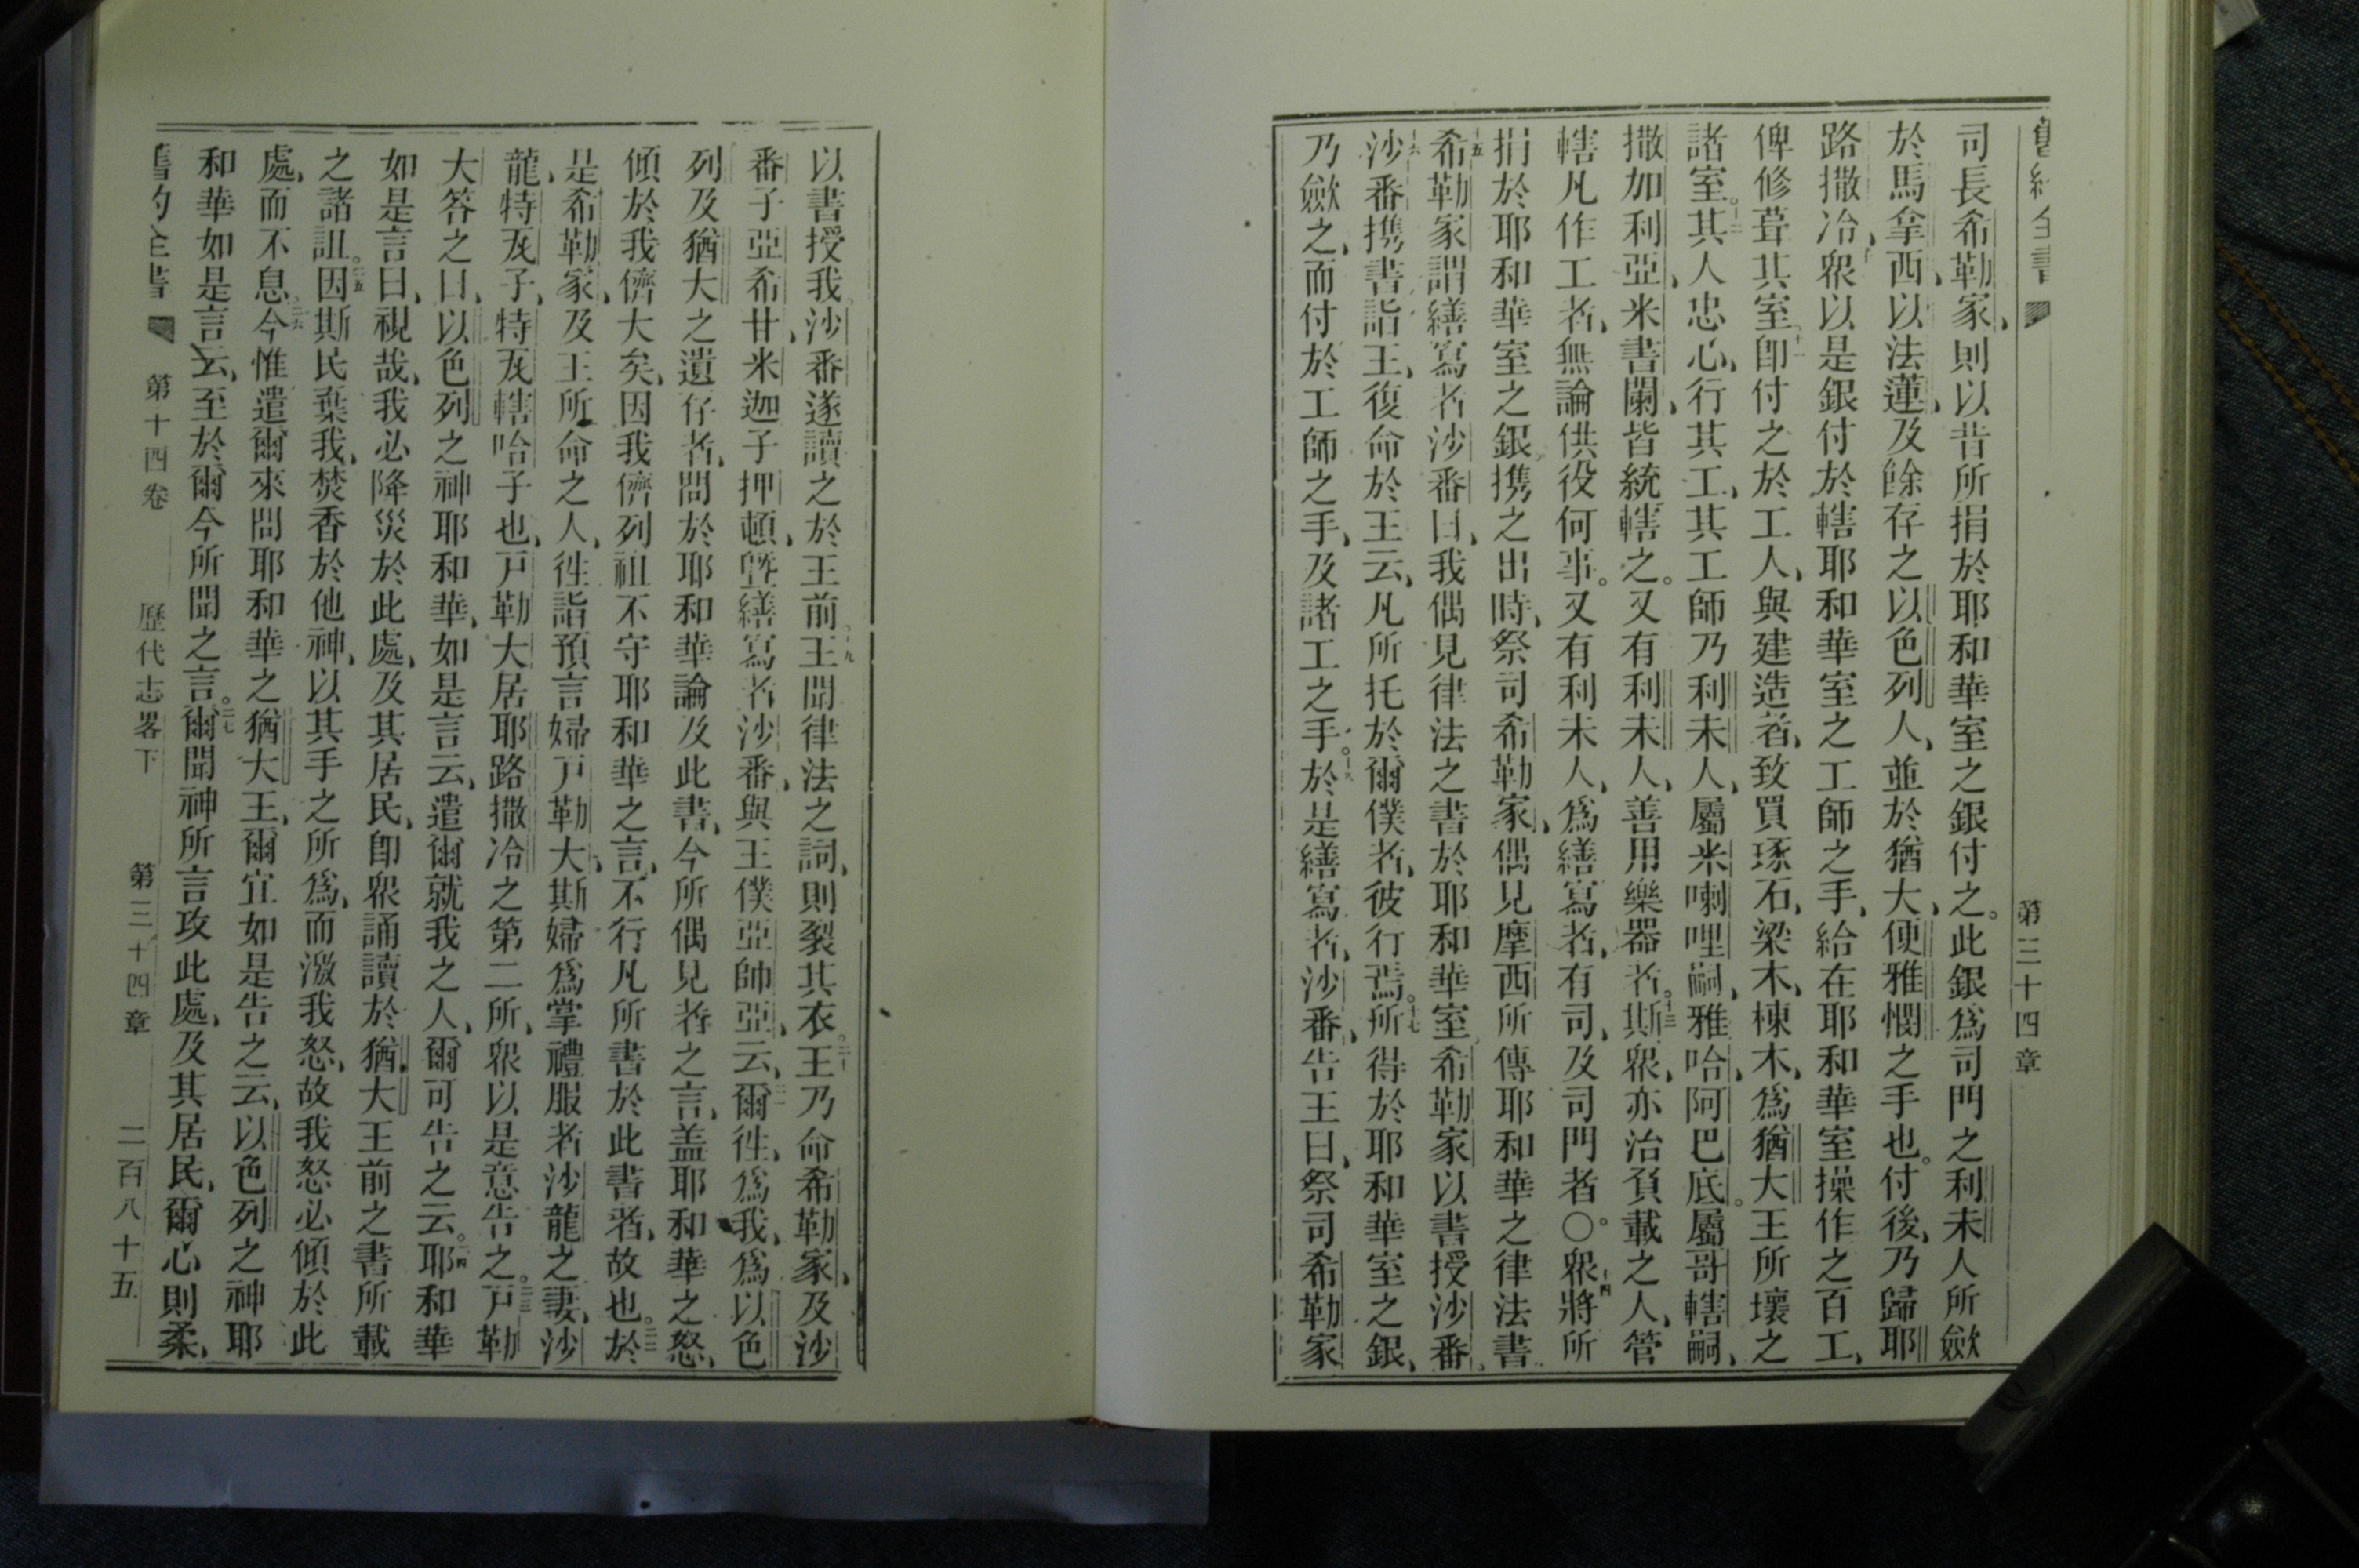 舊約全書 第三十四章
司長希勒家、則以昔所捐於耶和華室之銀付之。此銀爲司門之利未人所歛
於馬拿西、以法蓮、及餘存之以色列人、並於猶大、便雅憫之手也。付後、乃歸耶
路撒冷、衆以是銀付於轄耶和華室之工師之手、給在耶和華室操作之百工、
俾修葺其室、十一卽付之於工人、與建造者、致買琢石、梁木、棟木、爲猶大王所壞之
諸室。十二其人忠心、行其工、其工師乃利未人、屬米喇哩嗣、雅哈、阿巴底。屬哥轄嗣、
撒加利亞、米書闌、皆統轄之。又有利未人、善用樂器者。十三斯衆、亦治負載之人、管
轄凡作工者、無論供役何事。又有利未人、爲繕寫者、有司、及司門者。〇十四衆將所
捐於耶和華室之銀、携之出時、祭司希勒家、偶見摩西所傳耶和華之律法書
十五希勒家謂繕寫者沙番曰、我偶見律法之書於耶和華室、希勒家以書授沙番。
十六沙番携書詣王、復命於王云、凡所托於爾僕者、彼行焉。十七所得於耶和華室之銀、
乃歛之、而付於工師之手、及諸工之手。十八於是繕寫者、沙番、告王曰、祭司希勒家
以書授我、沙番遂讀之於王前。十九王聞律法之詞、則裂其衣。二十王乃命希勒家、及沙
番子亞希甘、米迦子押頓、曁繕寫者沙番、與王僕亞帥亞、云、二一爾徃、爲我、爲以色
列及猶大之遺存者、問於耶和華論及此書、今所偶見者之言、盖耶和華之怒、
傾於我儕大矣、因我儕列祖不守耶和華之言、不行凡所書於此書者、故也。二二於
是希勒家、及王所命之人、徃詣預言婦戸勒大、斯婦爲掌禮服者沙龍之妻、沙
龍、特瓦子、特瓦轄哈子也、戸勒大居耶路撒冷之第二所、衆以是意告之。二三戸勒
大答之曰、以色列之神耶和華、如是言云、遣爾就我之人、爾可告之云。二四耶和華
如是言曰、視哉、我必降災於此處、及其居民、卽衆誦讀於猶大王前之書所載
之諸詛。二五因斯民棄我、焚香於他神、以其手之所爲、而激我怒、故我怒必傾於此
處、而不息。二六今惟遣爾來問耶和華之猶大王、爾宜如是告之云、以色列之神耶
和華如是言云、至於爾今所聞之言。二七爾聞神所言攻此處、及其居民、爾心則柔、
舊約全書 第十四卷 歷代志畧下 第三十四章 二百八十五